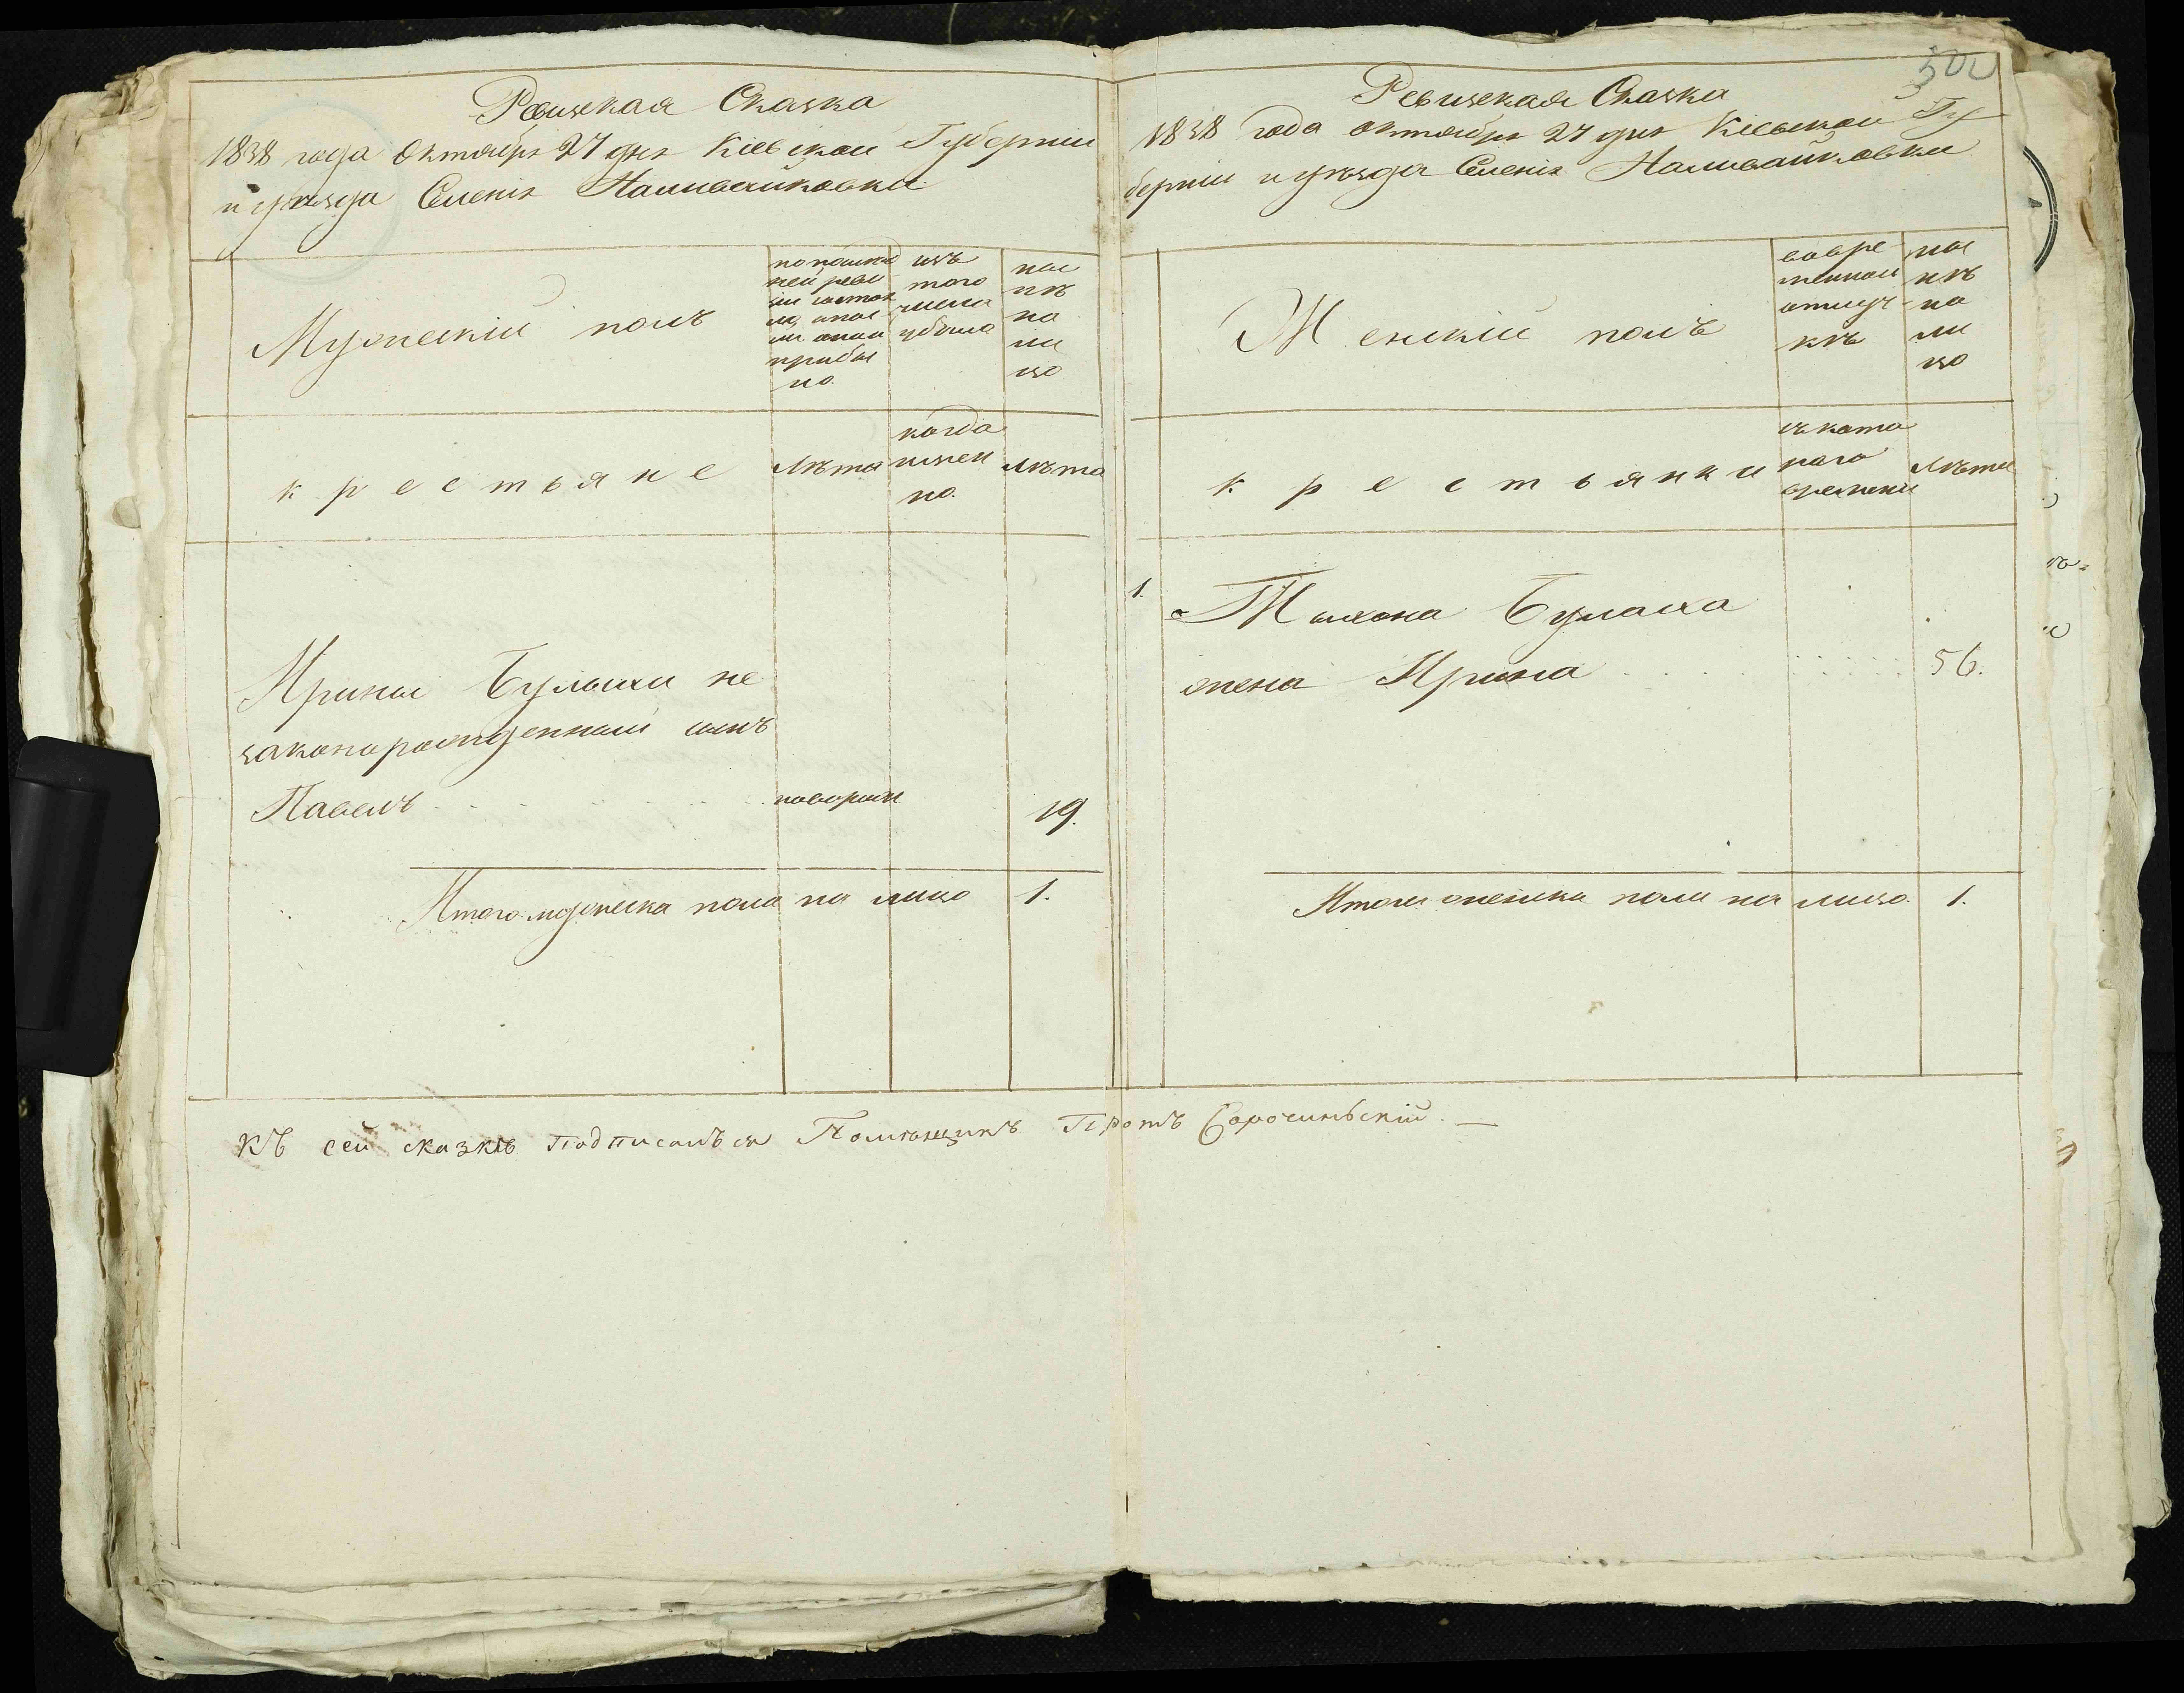 Ревизская Сказка
1838 года Октября 27 дня Кіевской Губерніи
и уѣзда Селенія Наливайковки
Мужескій полъ
по послѣд
ней реви
зіи состоя
ло, и пос
лѣ оной
прибы
ло.
изъ
того
числа
убыло
ны
нѣ
на
ли
цо
крестьяне
Лѣта
когда
имен
но.
Лѣта
Ирины Булахи не
законорожденный сынъ
Павелъ
новорож
19.
Итого мужеска пола на лицо 1.
502
Ревизская Сказка
1838 года октября 27 дня Кіевской Гу
берніи и уѣзда Селенія Наливайковки
Женскій полъ
во вре
менной
отлуч
кѣ
ны
нѣ
на
ли
цо
крестьянки
съ кото
раго
времени
Лѣта
1.
Булаха
жена Ирина
56.
Итого женска пола на лицо. 1.
Къ сей сказкѣ подписался Помѣщикъ Протъ Сорочиньскій. —